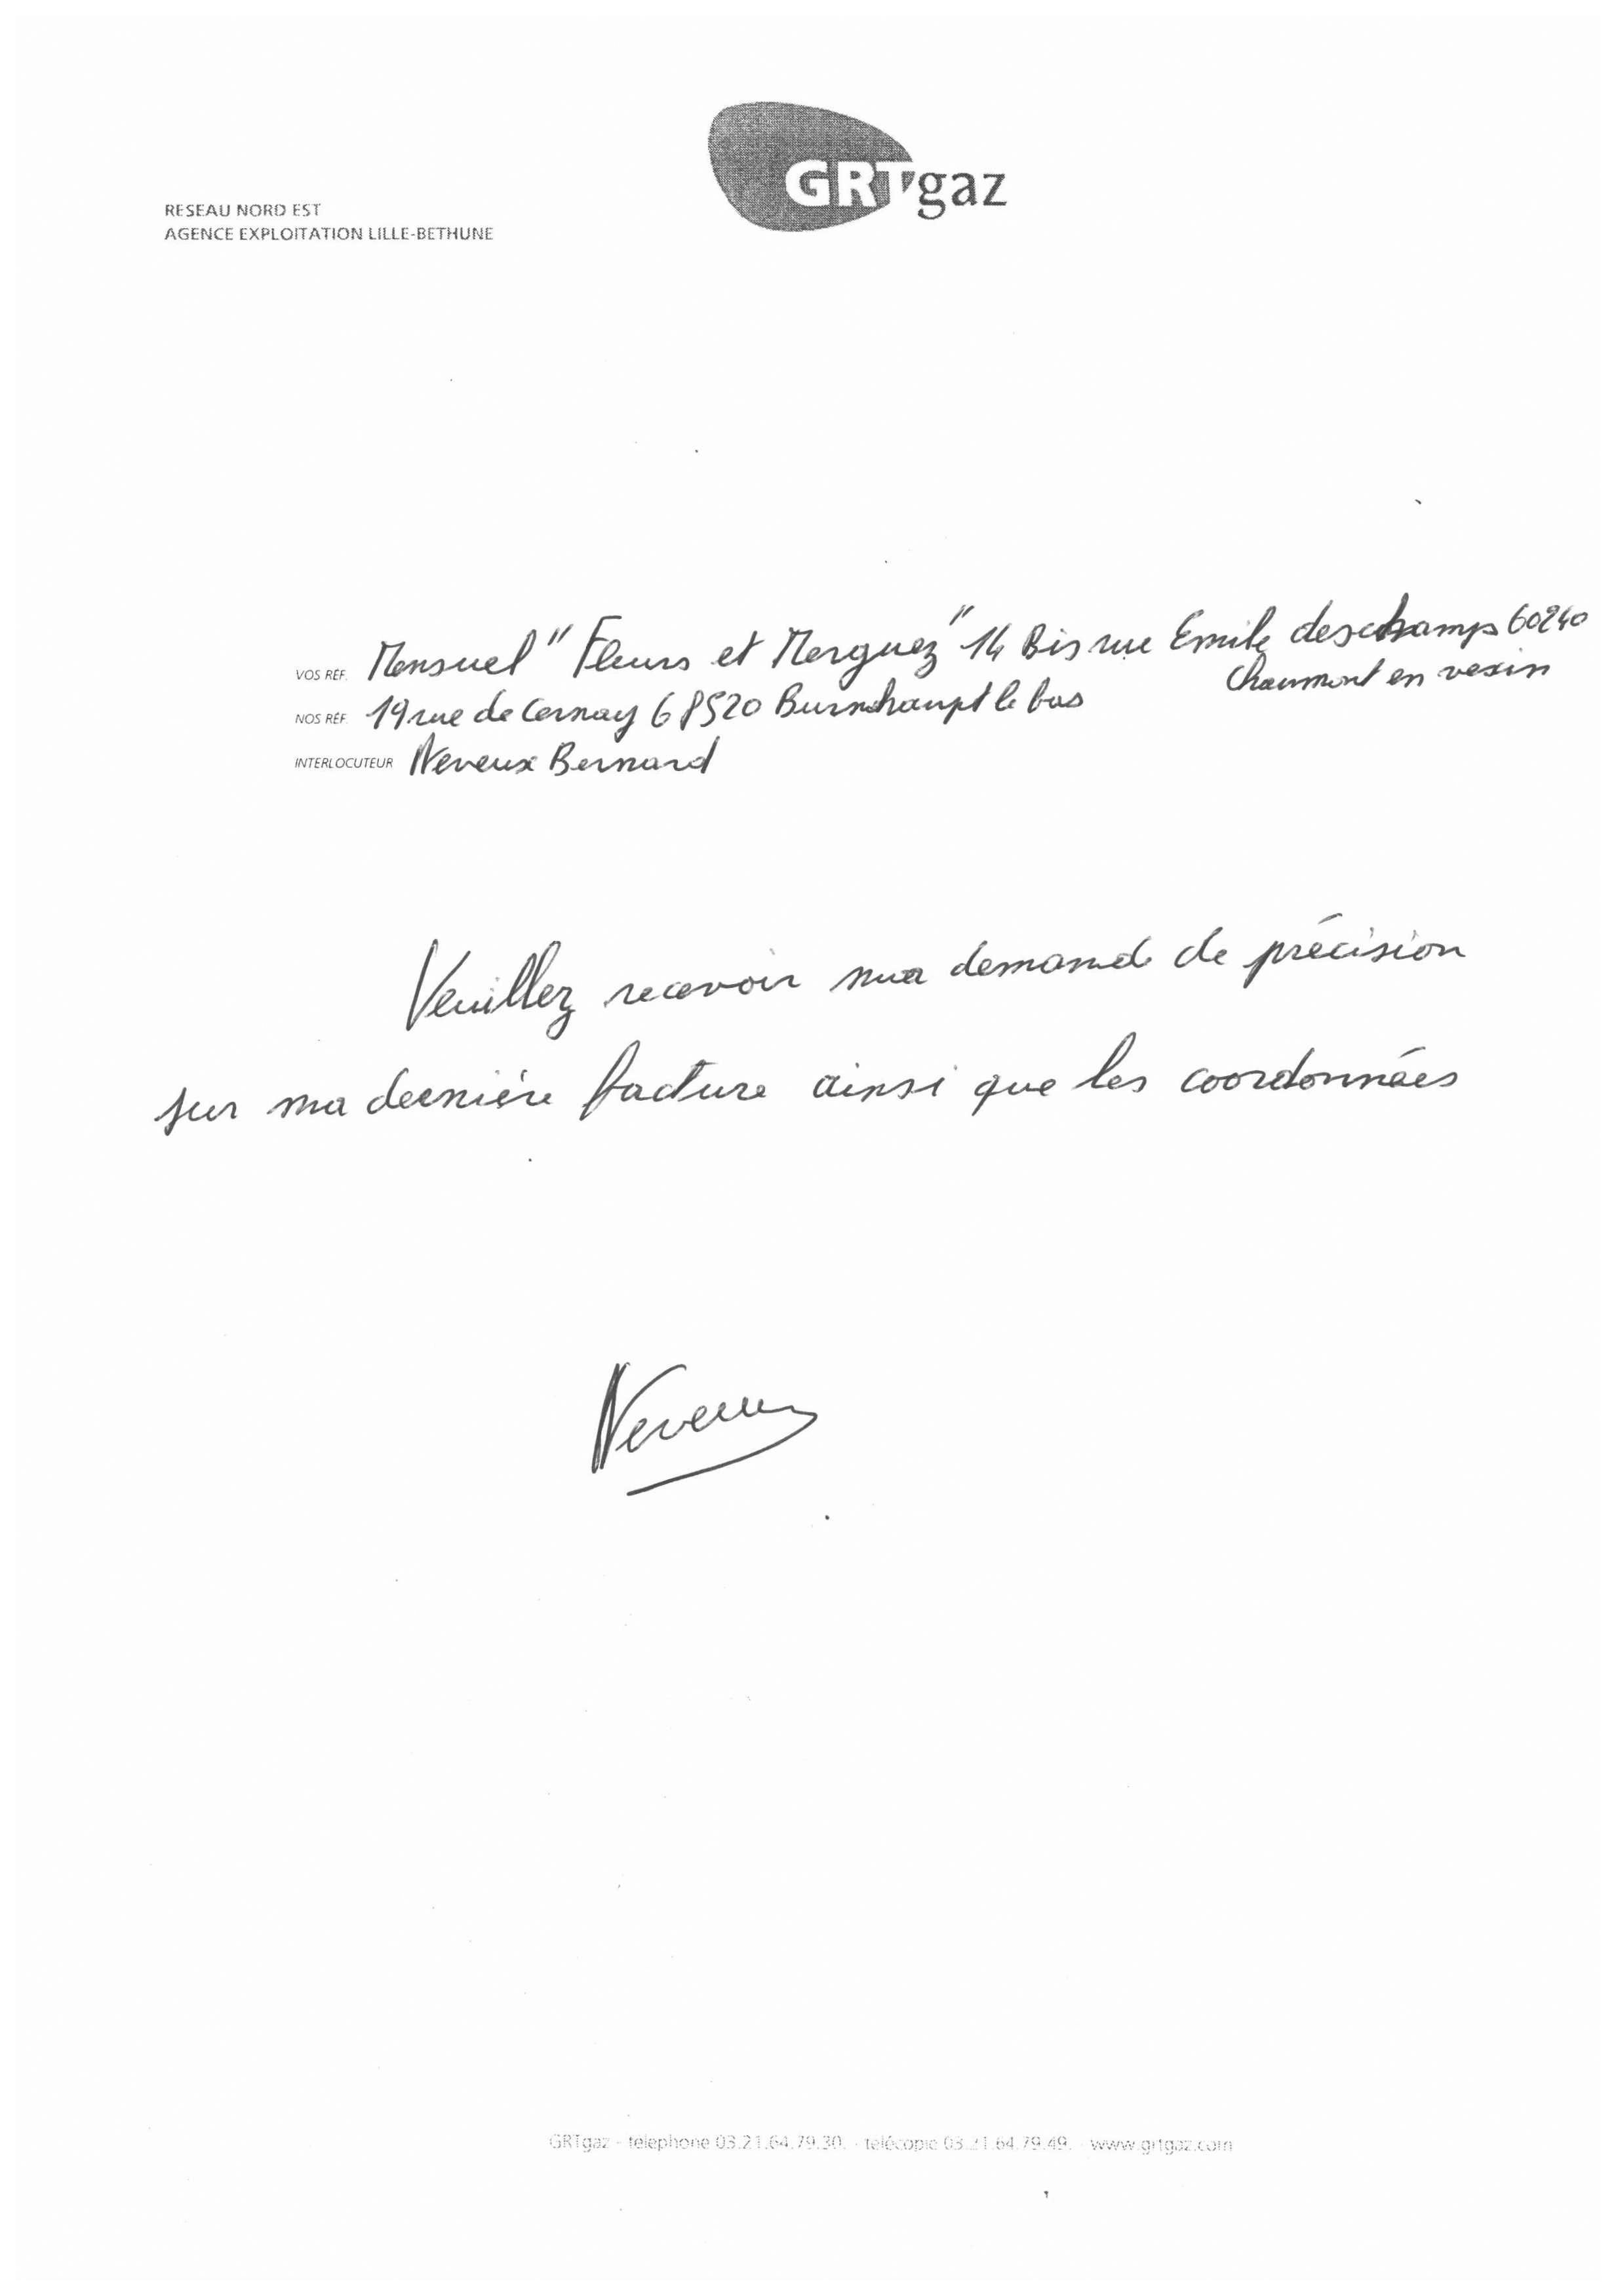 GRTgaz
RESEAU NORD EST
AGENCE EXPLOITATION LILLE-BETHUNE
VOS RÉF. Mensuel "Fleurs et Merguez" 14 Bis rue Emile deschamps 60240
Chaumont en vexin
NOS RÉF. 19 rue de Cernay 68520 Burnhaupt le bas
INTERLOCUTEUR Neveux Bernard
Veuillez recevoir ma demande de précision
sur ma dernière facture ainsi que les coordonnées
Neveux
GRTgaz - telephone 03.21.64.79.30. - télécopie 03.21.64.79.49. - www.grtgaz.com